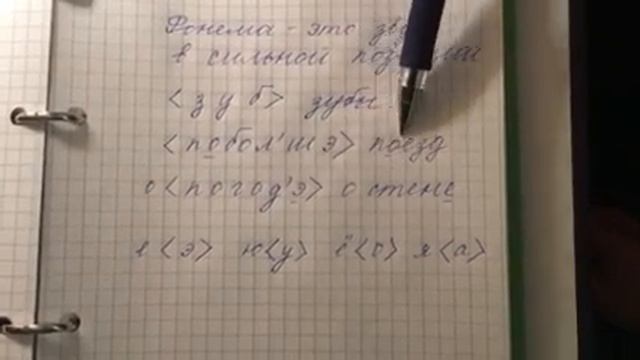 Фонема - это
в сильной
< з у б > зубы
< побол'шэ > поезд
о < погод'э > о стене
е < э > ю < у > ё < о > я < а >